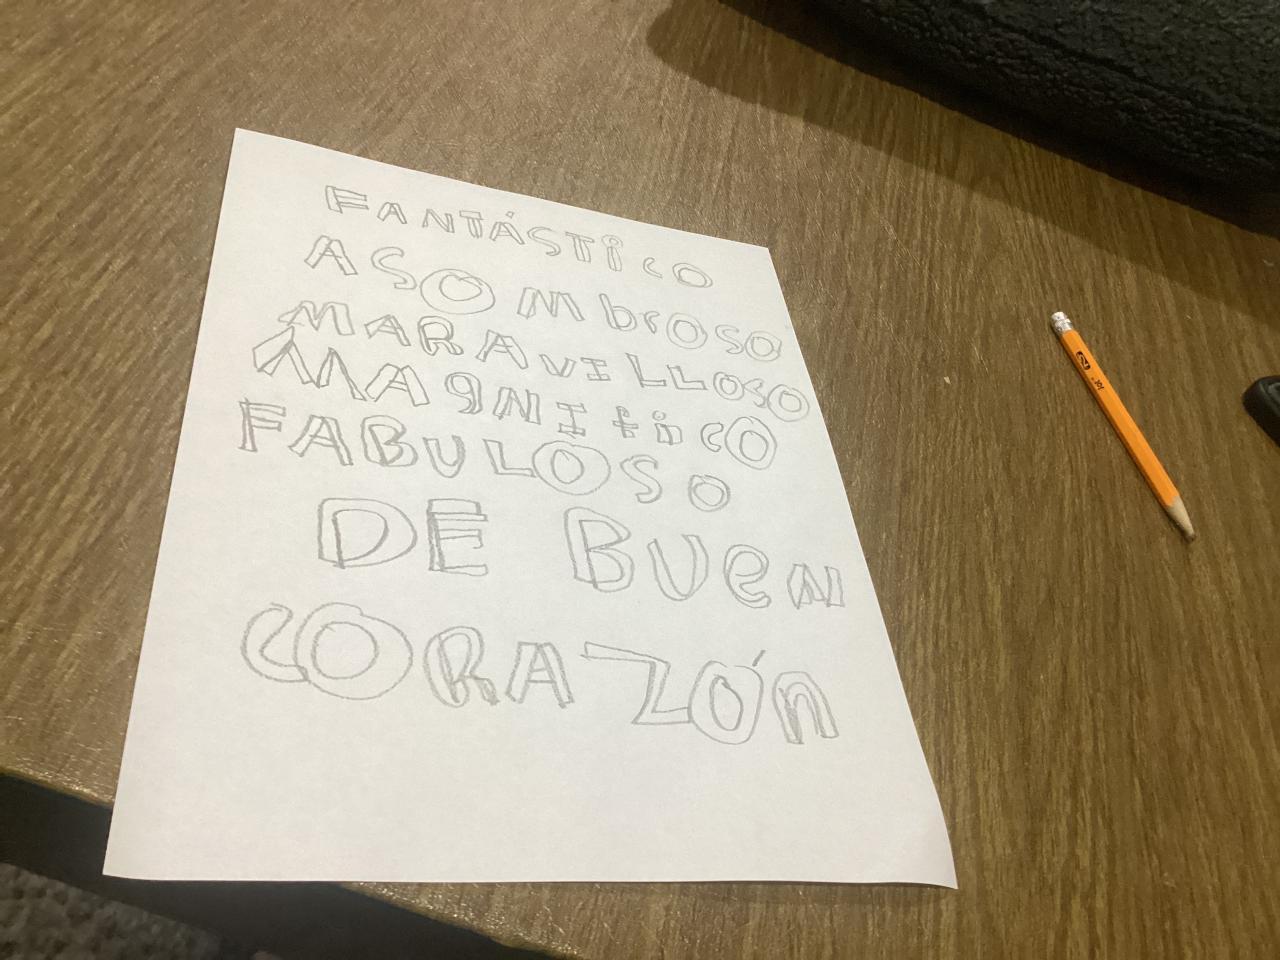 FANTÁSTiCO
ASOMbrOSO
MARAviLLOSO
MAgNIfiCO
FABULOSO
DE BUeN
CORAZÓn
2